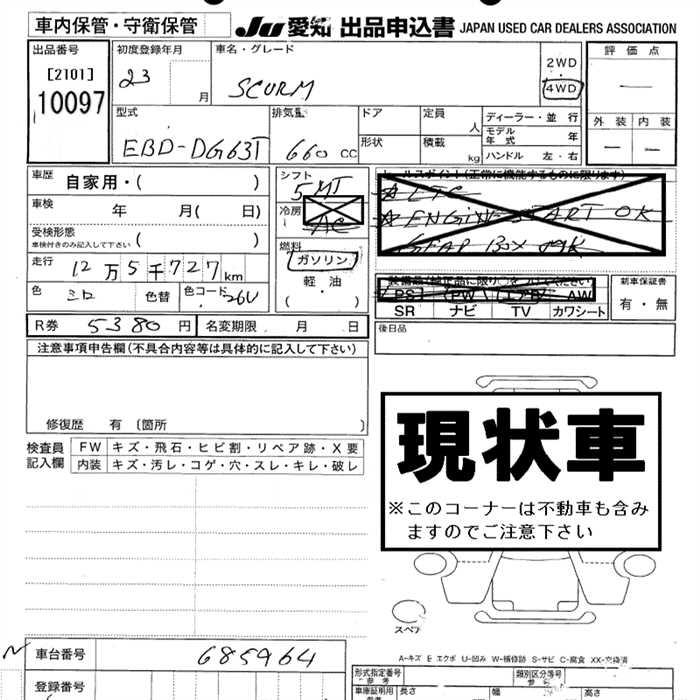 車内保管・守衛保管
JU 愛知 出品申込書 JAPAN USED CAR DEALERS ASSOCIATION
出品番号
[2101]
10097
初度登録年月
23
月
車名・グレード
SCURM
2WD
4WD
評価点
—
外装 内装
— —
型式
EBD-DG63T
排気量
660 CC
ドア
形状
定員
人
積載
kg
ディーラー・並行
モデル年式 年
ハンドル 左・右
車歴 自家用・( )
車検 年 月( 日)
受検形態
車検付きのみ記入して下さい ( )
走行 12万5千727km
色 シロ 色替 色コード 26U
シフト
5MT
冷房
AC
燃料
ガソリン
軽・油
( )
セールスポイント(正常に機能するものに限ります)
☆ETC
☆ENGINE START OK
GEAR BOX
PS PW エアB AW
SR ナビ TV カワシート
新車保証書
有・無
R券 5380円 名変期限 月 日
後日品
注意事項申告欄(不具合内容等は具体的に記入して下さい)
修復歴 有〔箇所 〕
検査員記入欄
FW キズ・飛石・ヒビ割・リペア跡・X要
内装 キズ・汚レ・コゲ・穴・スレ・キレ・破レ
現状車
※このコーナーは不動車も含み
ますのでご注意下さい
スペア
A-キズ E エクボ U-凹み W-補修跡 S-サビ C-腐食 XX-交換済
車台番号 685964
登録番号
形式指定番号
参考
類別区分番号
参考
車庫証明用
長さ 幅 高さ